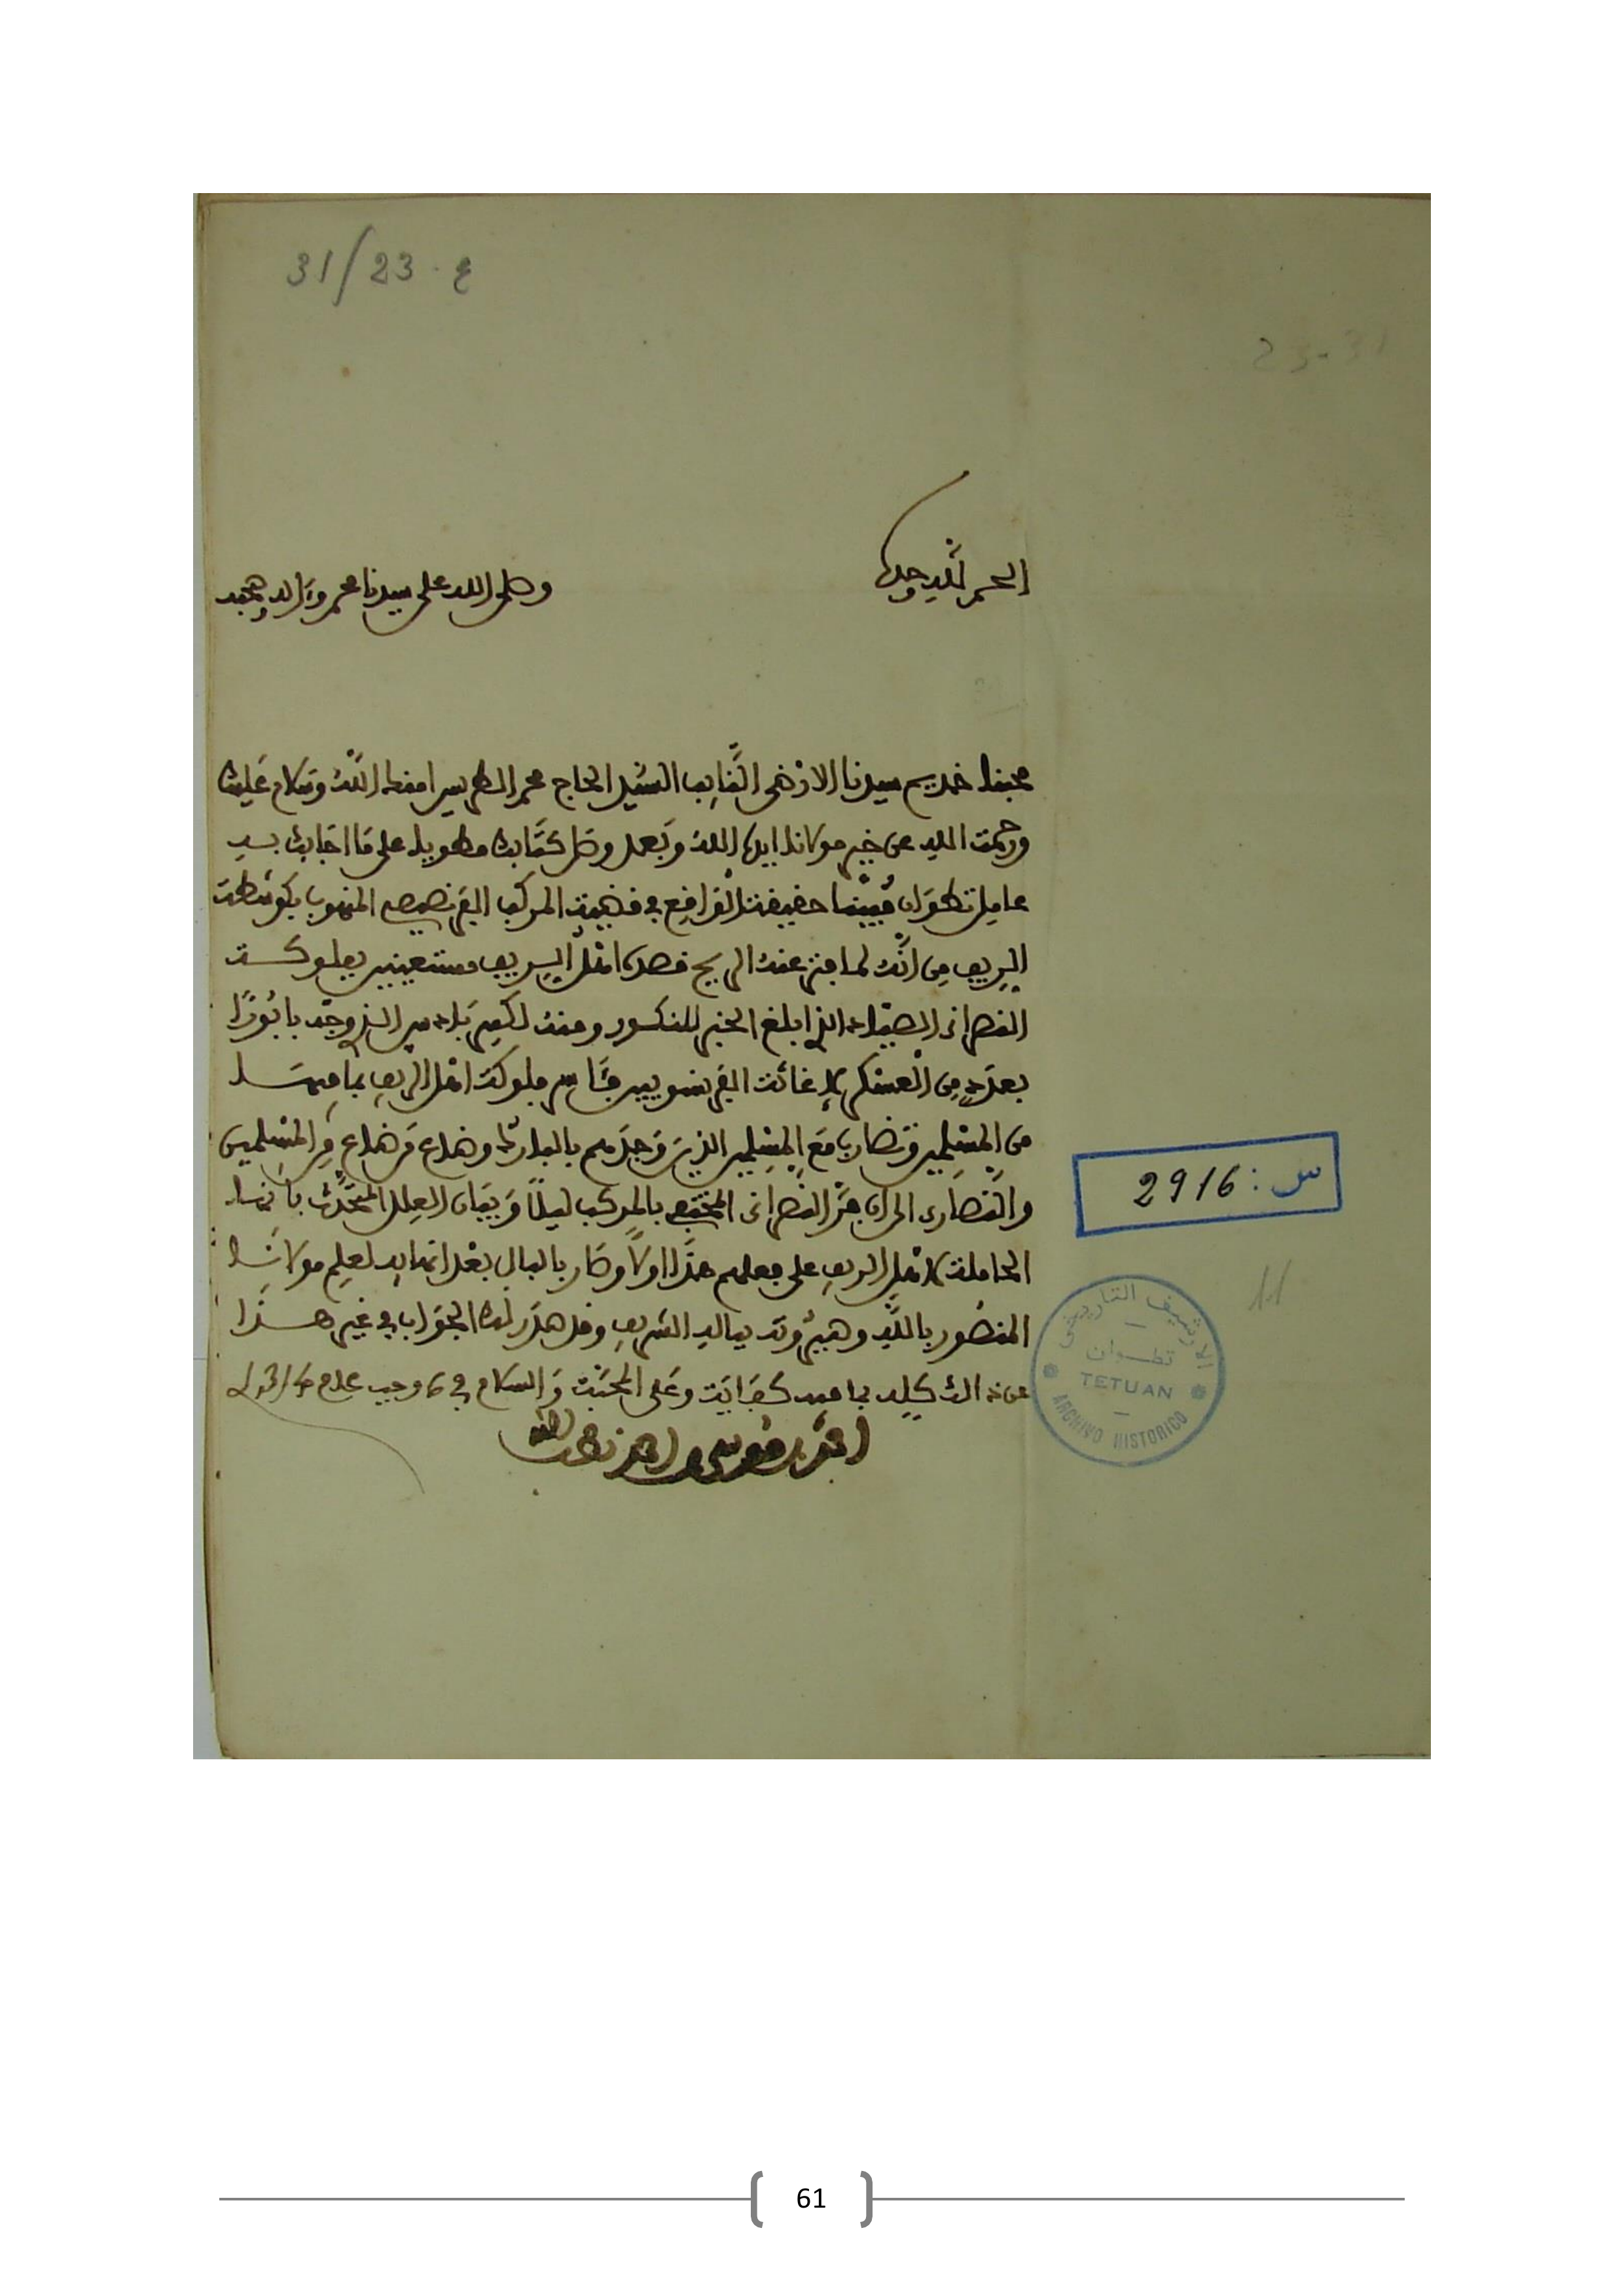 31/23 ع
23-31
الحمد لله وحده
وصلى الله على سيدنا محمد وءاله وصحبه
محبنا خديم سيدنا الارضى النايب السيد الحاج محمد الطريس امنك الله وسلام عليك
ورحمت الله عن خير مولانا ايده الله وبعد وصل كتابك مطويا على ما اجابك به
عامل تطوان مبينا حقيقة الواقع في قضية المركب الفرنصيص المنهوب بكوشطة
الريف من انه لما فتر عنه الريح قصده اهل الريف مستعينين بفلوكة
النصرانى الصياد الذي ابلغ الخبر للنكور ومنه لكبير بادس الذي وجه بابورا
بعدد من العسكر لاغاثت الفرنسويين فئاس فلوكة اهل الريف بما فيها
من المسلمين وتضارب مع المسلمين الذين وجدهم بالبلدة وضاع من ضاع من المسلمين
والنصارى الى ان فر النصرانى المختبع بالمركب ليلا وببيان العلل المتحدث بانها
الحاملة لاهل الريف على فعلهم هذا اولا وصار بالبال بعد انهايه لعلم مولانا
المنصور بالله وصيرورته بباله الشريف وقد صدر لك الجواب في غير هذا
عن ذالك كله بما فيه كفاية وعلى المحبة والسلام في 6 رجب عام 1314
احمد بن موسى بن احمد لطف الله
س: 2916
11
الارشيف التاريخي
تطـوان
TETUAN
ARCHIVO HISTORICO
61